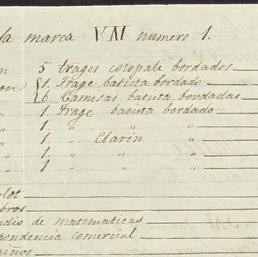 la marca VM numero 1.
5 trages cotopali bordados
1. Trage batista bordado
6. Camisas batista bordadas
1. Trage batista bordado
1 " " "
1 " Clarin "
1 " " "
1 " " "
lot
bros
dio de matematicas
pondencia comercial
niños